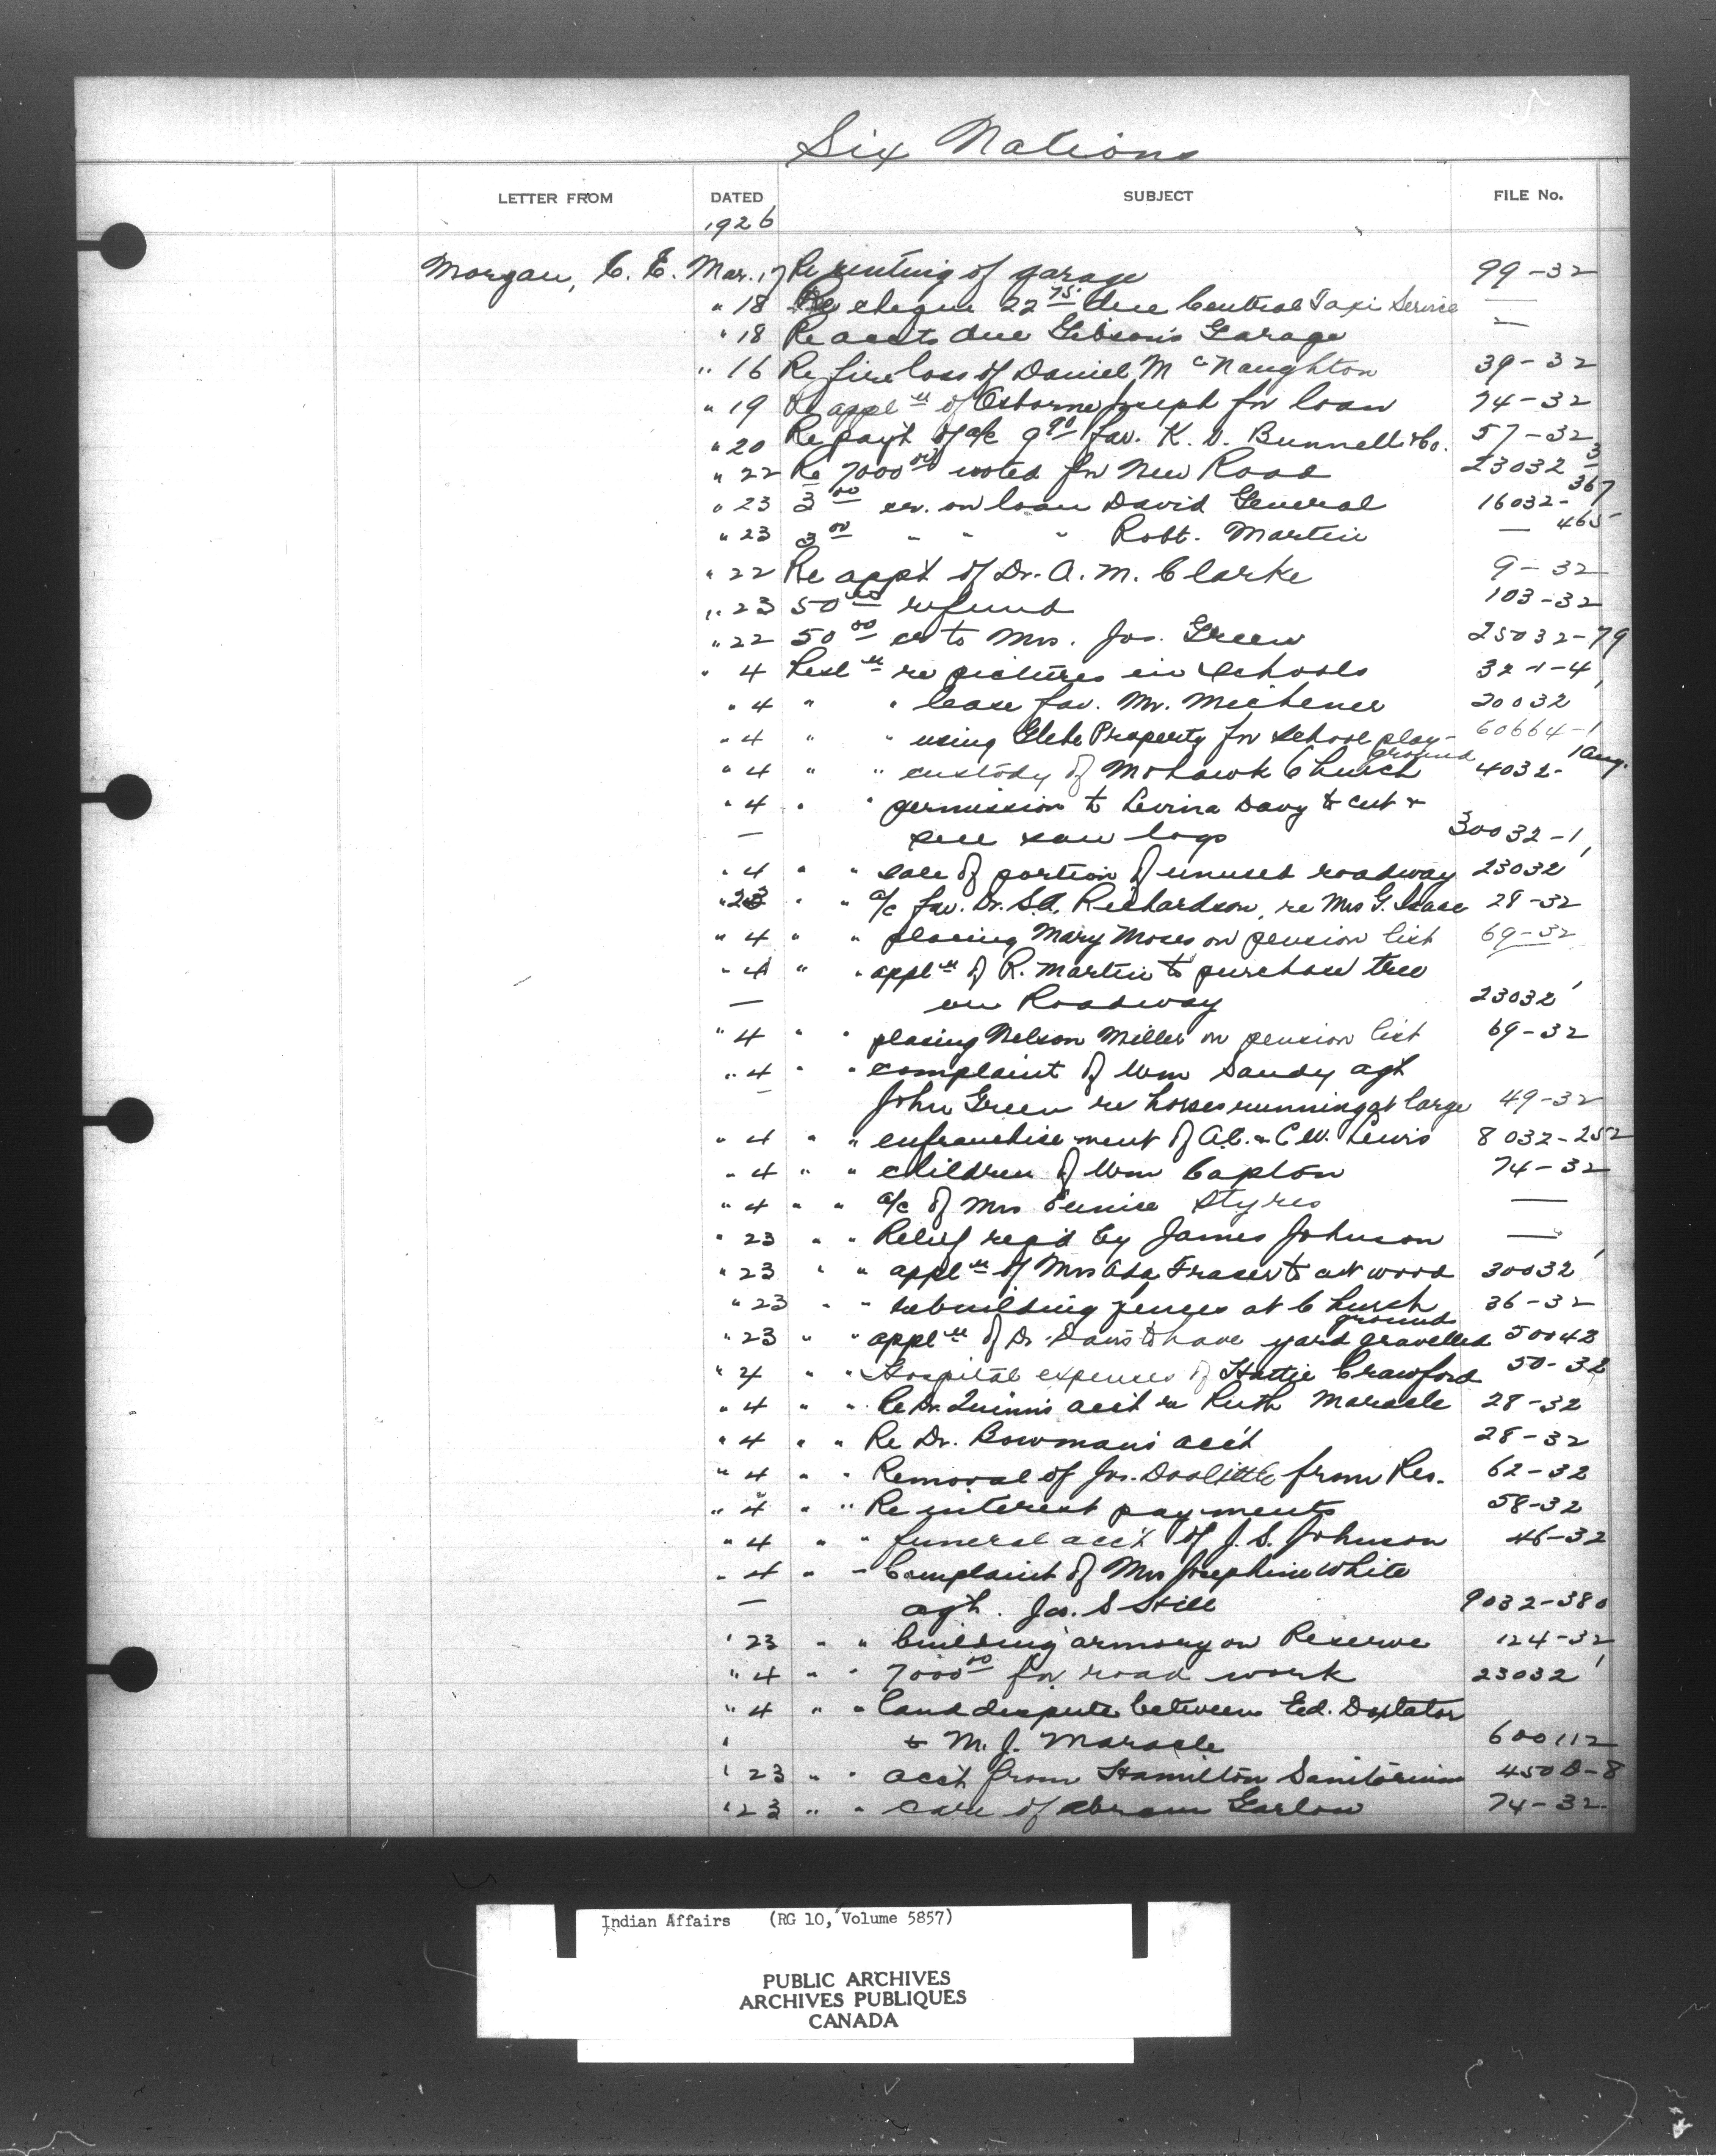 Six Nations
LETTER FROM DATED SUBJECT FILE No.
1926
Morgan, C. E. Mar. 17 Re renting of garage 99-32
" 18 Re cheque 22 75 due Central Taxi Service —
" 18 Re accts due Gibson's Garage —
" 16 Re fire loss of Daniel McNaughton 39-32
" 19 Re appl'n of Osborne Joseph for loan 74-32
" 20 Re pay't of a/c 9 90 fav. K. V. Bunnell & Co. 57-32
" 22 Re 7000 00 voted for New Road 23032 3
" 23 3 00 cr. on loan David General 16032-367
" 23 3 00 " " " Robt. Martin — 465
" 22 Re appt of Dr. A. M. Clarke 9-32
" 23 50 00 refund 103-32
" 22 50 00 cr to Mrs. Jos. Green 25032-79
" 4 Resl'n re pictures in schools 32-1-4
" 4 " " lease fav. Mr. Michener 20032
" 4 " " using Glebe Property for school play- 60664-1
ground
" 4 " " custody of Mohawk Church 4032-1 Aug.
" 4 " " permission to Levina Davy to cut &
— sell saw logs 30032-1
" 4 " " sale of portion of unused roadway 23032
" 23 " " a/c fav. Dr. S.A. Richardson, re Mrs G. Isaac 28-32
" 4 " " placing Mary Moses on pension list 69-32
" 4 " " appl'n of R. Martin to purchase tree
— on Roadway 23032
" 4 " " placing Nelson Miller on pension list 69-32
" 4 " " complaint of Wm Sandy agt
— John Green re horses running at large 49-32
" 4 " " enfranchisement of A.C. & C.W. Lewis 8032-252
" 4 " " children of Wm Capton 74-32
" 4 " " a/c of Mrs Eunice Styres —
" 23 " " Relief req'd by James Johnson —
" 23 " " appl'n of Mrs Ada Fraser to cut wood 30032
" 23 " " rebuilding fences at Church 36-32
grounds
" 23 " " appl'n of Dr. Davis to have yard gravelled 50042
" 4 " " Hospital expenses of Hattie Crawford 50-32
" 4 " " Re Dr. Quinn's acc't re Ruth Maracle 28-32
" 4 " " Re Dr. Bowman's acc't 28-32
" 4 " " Removal of Jos. Doolittle from Res. 62-32
" 4 " " Re interest payments 58-32
" 4 " " funeral acc't of J. S. Johnson 46-32
" 4 " " Complaint of Mrs Josephine White
— agt. Jas. S Hill 9032-380
" 23 " " building armory on Reserve 124-32
" 4 " " 7000 00 for road work 23032
" 4 " " land dispute between Ed. Doxtator
" & M. J. Maracle 600112
" 23 " " acc't from Hamilton Sanitorium 450 D-8
" 23 " " care of Abram Garlow 74-32
Indian Affairs (RG 10, Volume 5857)
PUBLIC ARCHIVES
ARCHIVES PUBLIQUES
CANADA